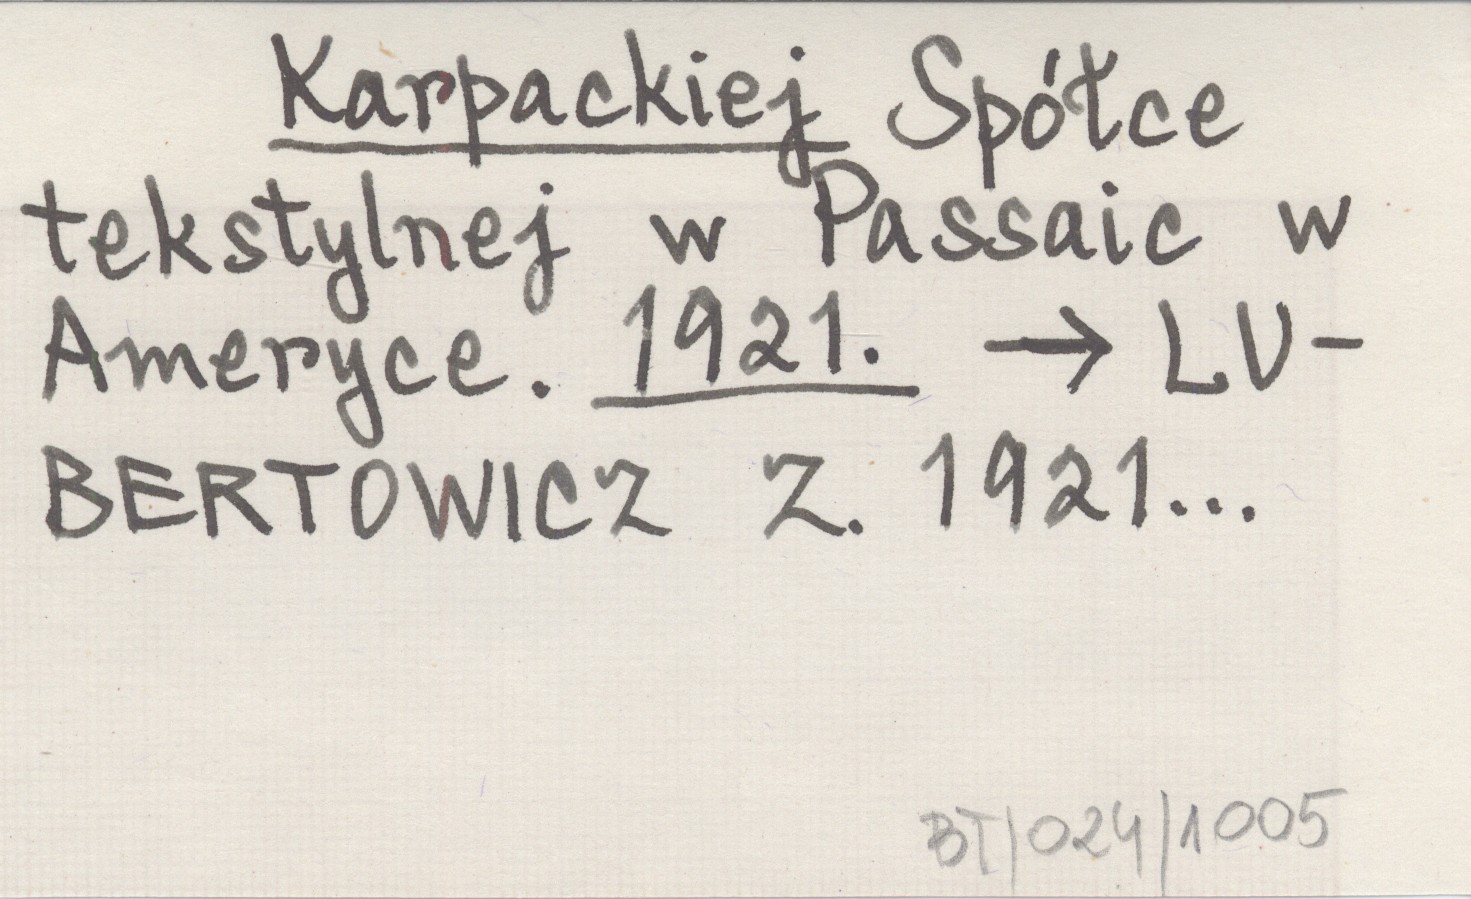 Karpackiej Spółce
tekstylnej w Passaic w
Ameryce. 1921. → LU-
BERTOWICZ Z. 1921...
BT/024/1005